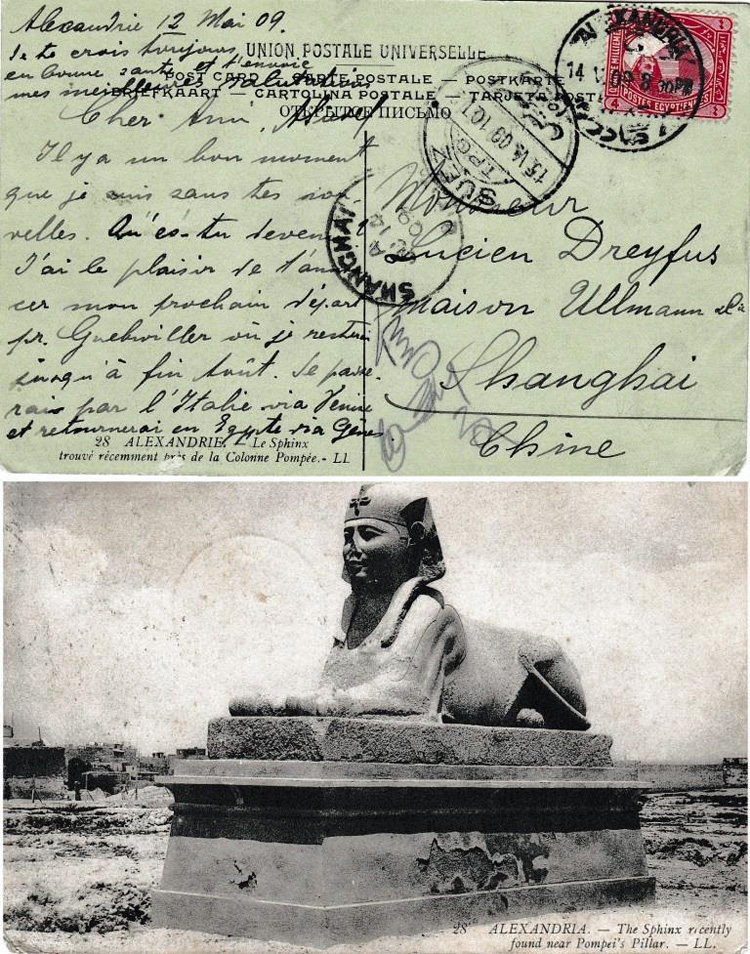 Alexandrie 12 Mai 09.
Je te crois toujours
en bonne santé et t'envoie
mes meilleures salutations
UNION POSTALE UNIVERSELLE
POST CARD — CARTE POSTALE — POSTKARTE
BRIEFKAART — CARTOLINA POSTALE — TARJETA POST
ОТКРЫТОЕ ПИСЬМО
Cher Ami,
Il y a un bon moment
que je suis sans tes nou-
velles. Qu'es-tu devenu?
J'ai le plaisir de t'annon
cer mon prochain départ
pr. Guebwiller où je resterai
jusqu'à fin Août. Je passe-
rai par l'Italie via Venise
et retournerai en Egypte via Gênes.
28 ALEXANDRIE. — Le Sphinx
trouvé récemment près de la Colonne Pompée. - LL
ALEXANDRIA
14 V 09 8 30PM
POSTES EGYPTIENNES
SUEZ
15 V 09 10
SHANGHAI
09
Monsieur
Lucien Dreyfus
Maison Ullmann & Cie
Shanghai
Chine
28 ALEXANDRIA. — The Sphinx recently
found near Pompei's Pillar. — LL.